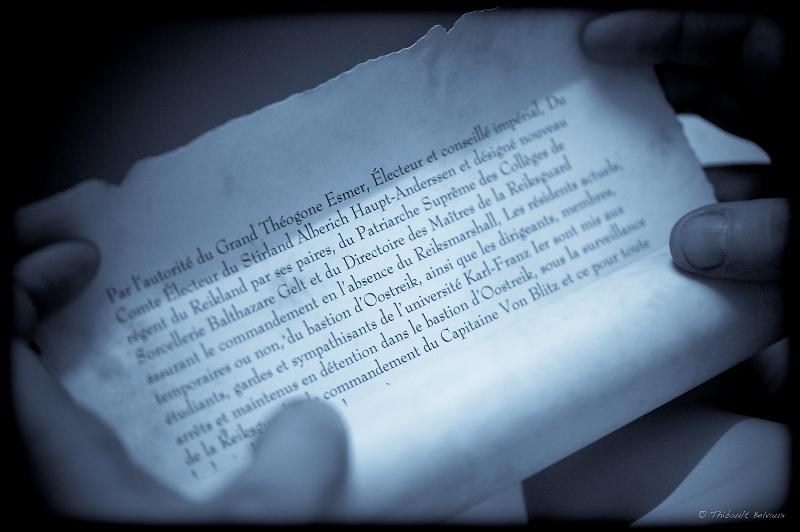 Par l'autorité du Grand Théogone Esmer, Électeur et conseillé impérial, Du
Comte Électeur du Stirland Alberich Haupt-Anderssen et désigné nouveau
régent du Reikland par ses paires, du Patriarche Suprême des Collèges de
Sorcellerie Balthazare Gelt et du Directoire des Maîtres de la Reiksguard
assurant le commandement en l'absence du Reiksmarshall, Les résidents actuels,
temporaires ou non, du bastion d'Oostreik, ainsi que les dirigeants, membres,
étudiants, gardes et sympathisants de l'université Karl-Franz 1er sont mis aux
arrêts et maintenus en détention dans le bastion d'Oostreik, sous la surveillance
de la commandement du Capitaine Von Blitz et ce pour toute
© Thibault Belvaux